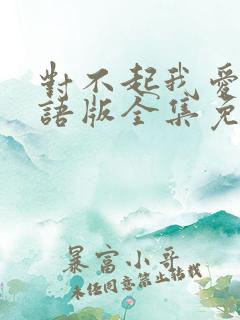 對不起我愛
語版全集免
暴富小哥
未经同意禁止转载